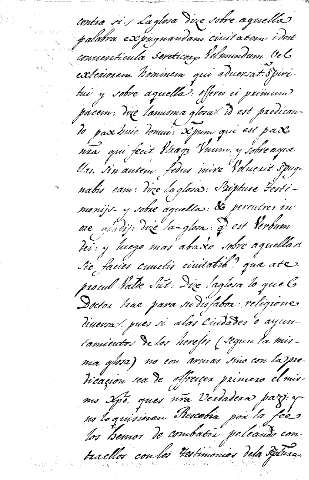 contra si. / La glosa dize sobre aquella
palabra expugnandam civitatem: id est
conventicula vel mundum vel
exteriorem hominem qui adversat. Spiri-
tui y sobre aquella: offeres ei primum
pacem: dize la misma glosa: id est predican-
do pax huic domui: Xpum qui est pax
nra qui fecit utraq. unum. y sobre aque-
lla. sin autem fedus inire
eam: dize la glosa: Scripture testi-
monijs. y sobre aquella: percuties in
ore gladij: dize la glosa: q. est verbum
dei: y luego mas abaxo sobre aquella:
Sic facies cunctis civitatib. que a te
procul valde sut. Dize la glosa lo que
Doctor trae para su religione
diversa: pues si a las Ciudades o ayun-
tamientos de los herejes (segun la mis-
ma glosa) no con armas sino con la pre-
dicacion sea de ofrecer primero el mis-
mo Xpo. ques nra verdadera paz: y
no lo quisieren Rescebir por la fee
los hemos de combatir peleando con-
tra ellos con los testimonios de la